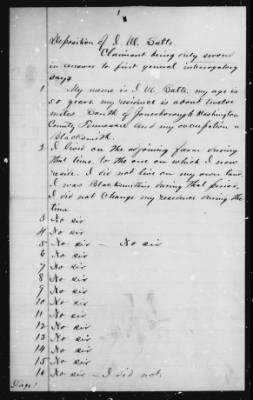 1
Deposition of J. M. Salts.
Claimant being duly sworn
in answer to first general interogatory
says
1 My name is J M. Salts, my age is
50 years my residence is about twelve
miles South of Jonesborough Washington
County Tennessee And my occupation a
Blacksmith.
2 I lived on the adjoining farm during
that time, to the one on which I now
reside. I did not live on my own land
I was Blacksmithing during that period.
I did not change my residence during the
time
3 No sir
4 No sir
5 No sir - No sir
6 No sir
7 No sir
8 No sir
9 No sir
10 No sir
11 No sir
12 No sir
13 No sir
14 No sir
15 No sir
16 No sir - I did not.
Page 1